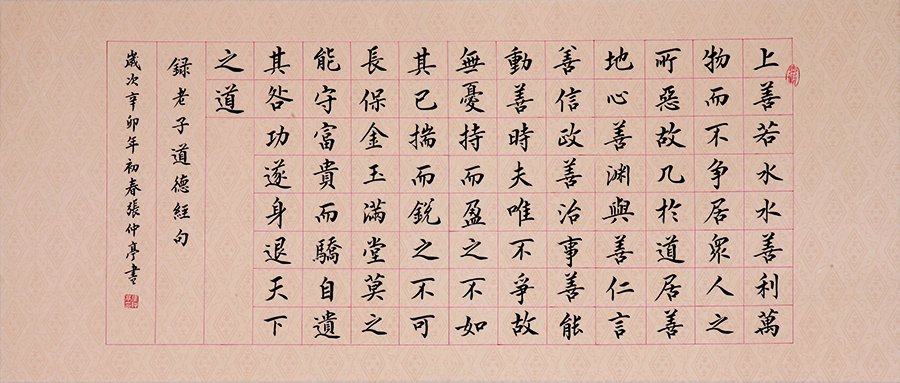 上善若水水善利萬
物而不争居眾人之
所惡故几於道居善
地心善渊與善仁言
善信政善治事善能
動善時夫唯不爭故
無憂持而盈之不如
其已揣而銳之不可
長保金玉滿堂莫之
能守富貴而驕自遺
其咎功遂身退天下
之道
録老子道德經句
歲次辛卯年初春張仲亭書